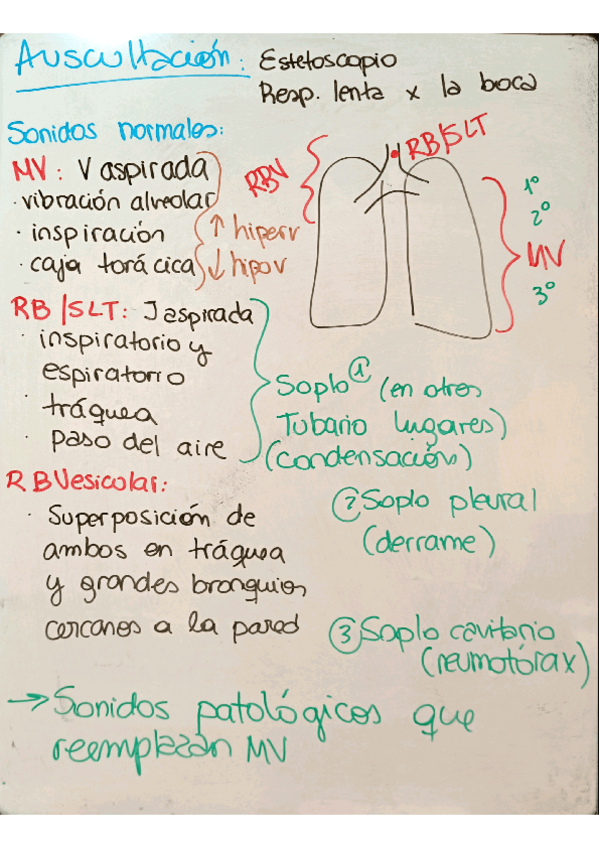 Auscultación: Estetoscopio
Resp. lenta x la boca
Sonidos normales:
MV: V aspirada
· vibración alveolar
· inspiración
· caja torácica
↑ hiperv
↓ hipov
RBV
RB/SLT
1º
2º
MV
3º
RB/SLT: J aspirada
· inspiratorio y
espiratorio
· tráquea
· paso del aire
Soplo ① (en otros
Tubario lugares)
(condensación)
RBVesicolar:
· Superposición de
ambos en tráquea
y grandes bronquios
cercanos a la pared
② Soplo pleural
(derrame)
③ Soplo cavitario
(neumotórax)
→ Sonidos patológicos que
reemplazan MV